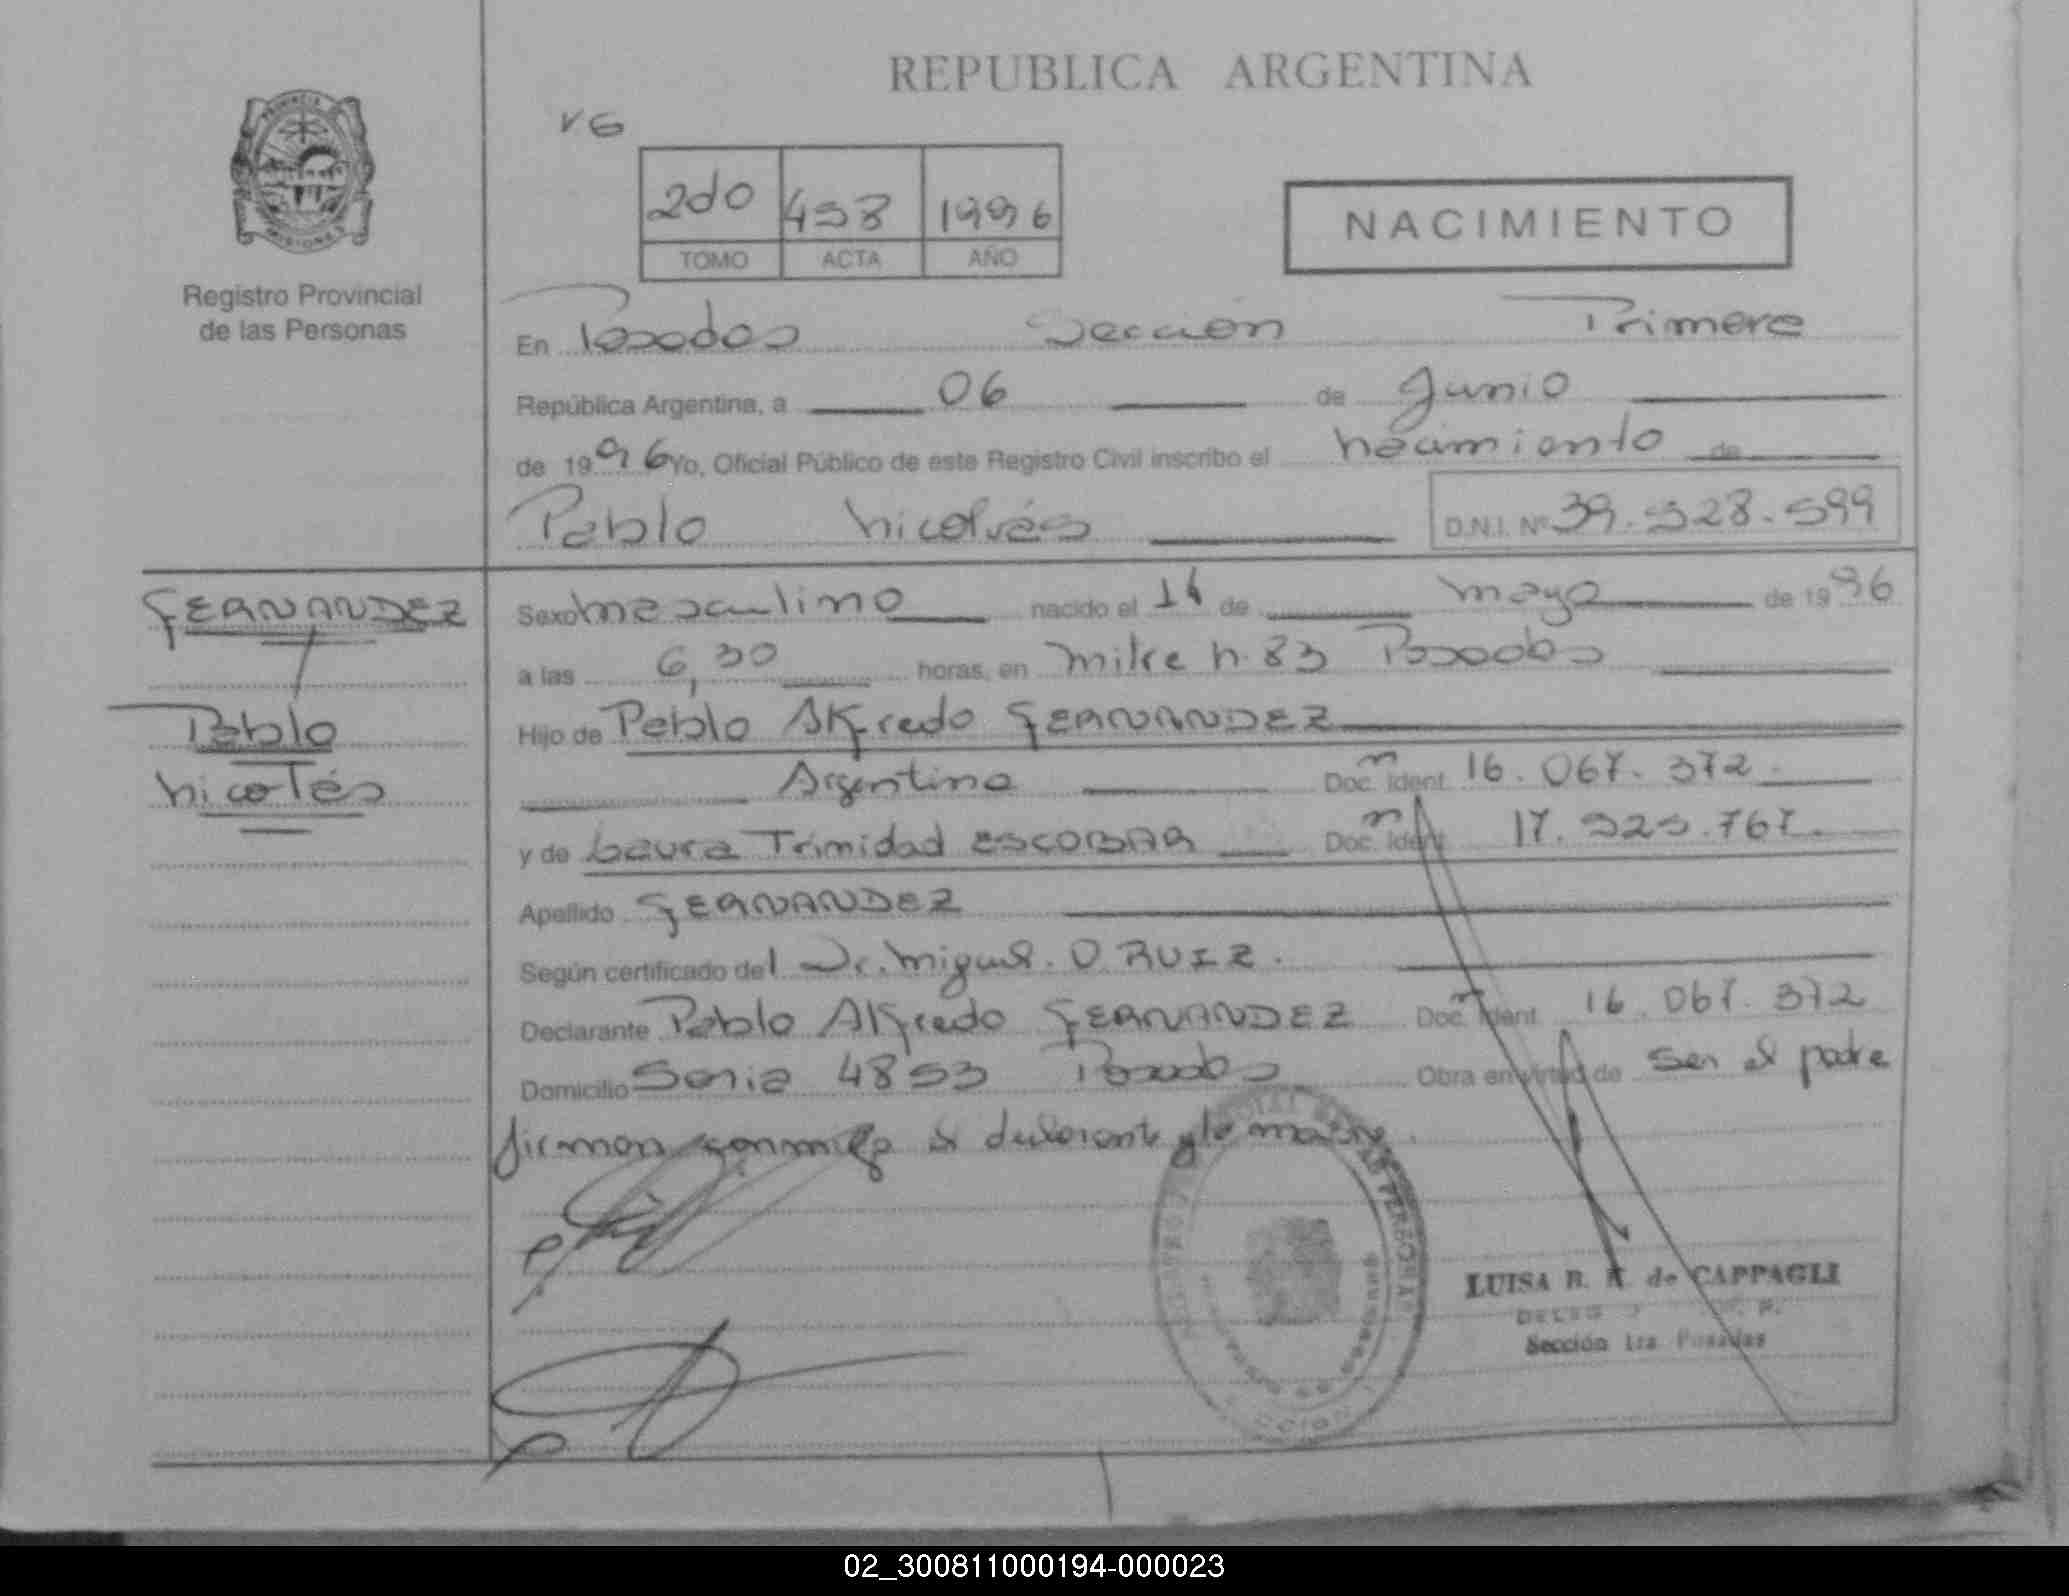 REPUBLICA ARGENTINA
PROVINCIA
MISIONES
Registro Provincial
de las Personas
VG
2do 458 1996
TOMO ACTA AÑO
NACIMIENTO
En Posadas Sección Primera
República Argentina, a 06 de Junio
de 1996 Yo, Oficial Público de este Registro Civil inscribo el nacimiento de
Pablo Nicolás D.N.I. Nº 39.528.599
FERNANDEZ
Pablo
Nicolás
Sexo masculino nacido el 14 de mayo de 1996
a las 6,30 horas, en Mitre n. 83 Posadas
Hijo de Pablo Alfredo FERNANDEZ
Argentino Doc. Ident. m 16.067.372.
y de Laura Trinidad ESCOBAR Doc. Ident. m 17.525.767.
Apellido FERNANDEZ
Según certificado del Dr. Miguel. O. RUIZ.
Declarante Pablo Alfredo FERNANDEZ Doc. Ident. m 16.067.372
Domicilio 4853 Posadas Obra en virtud de ser el padre
firman conmigo el declarante y la madre.
LUISA B. de CAPPAGLI
Sección 1ra Posadas
02_300811000194-000023